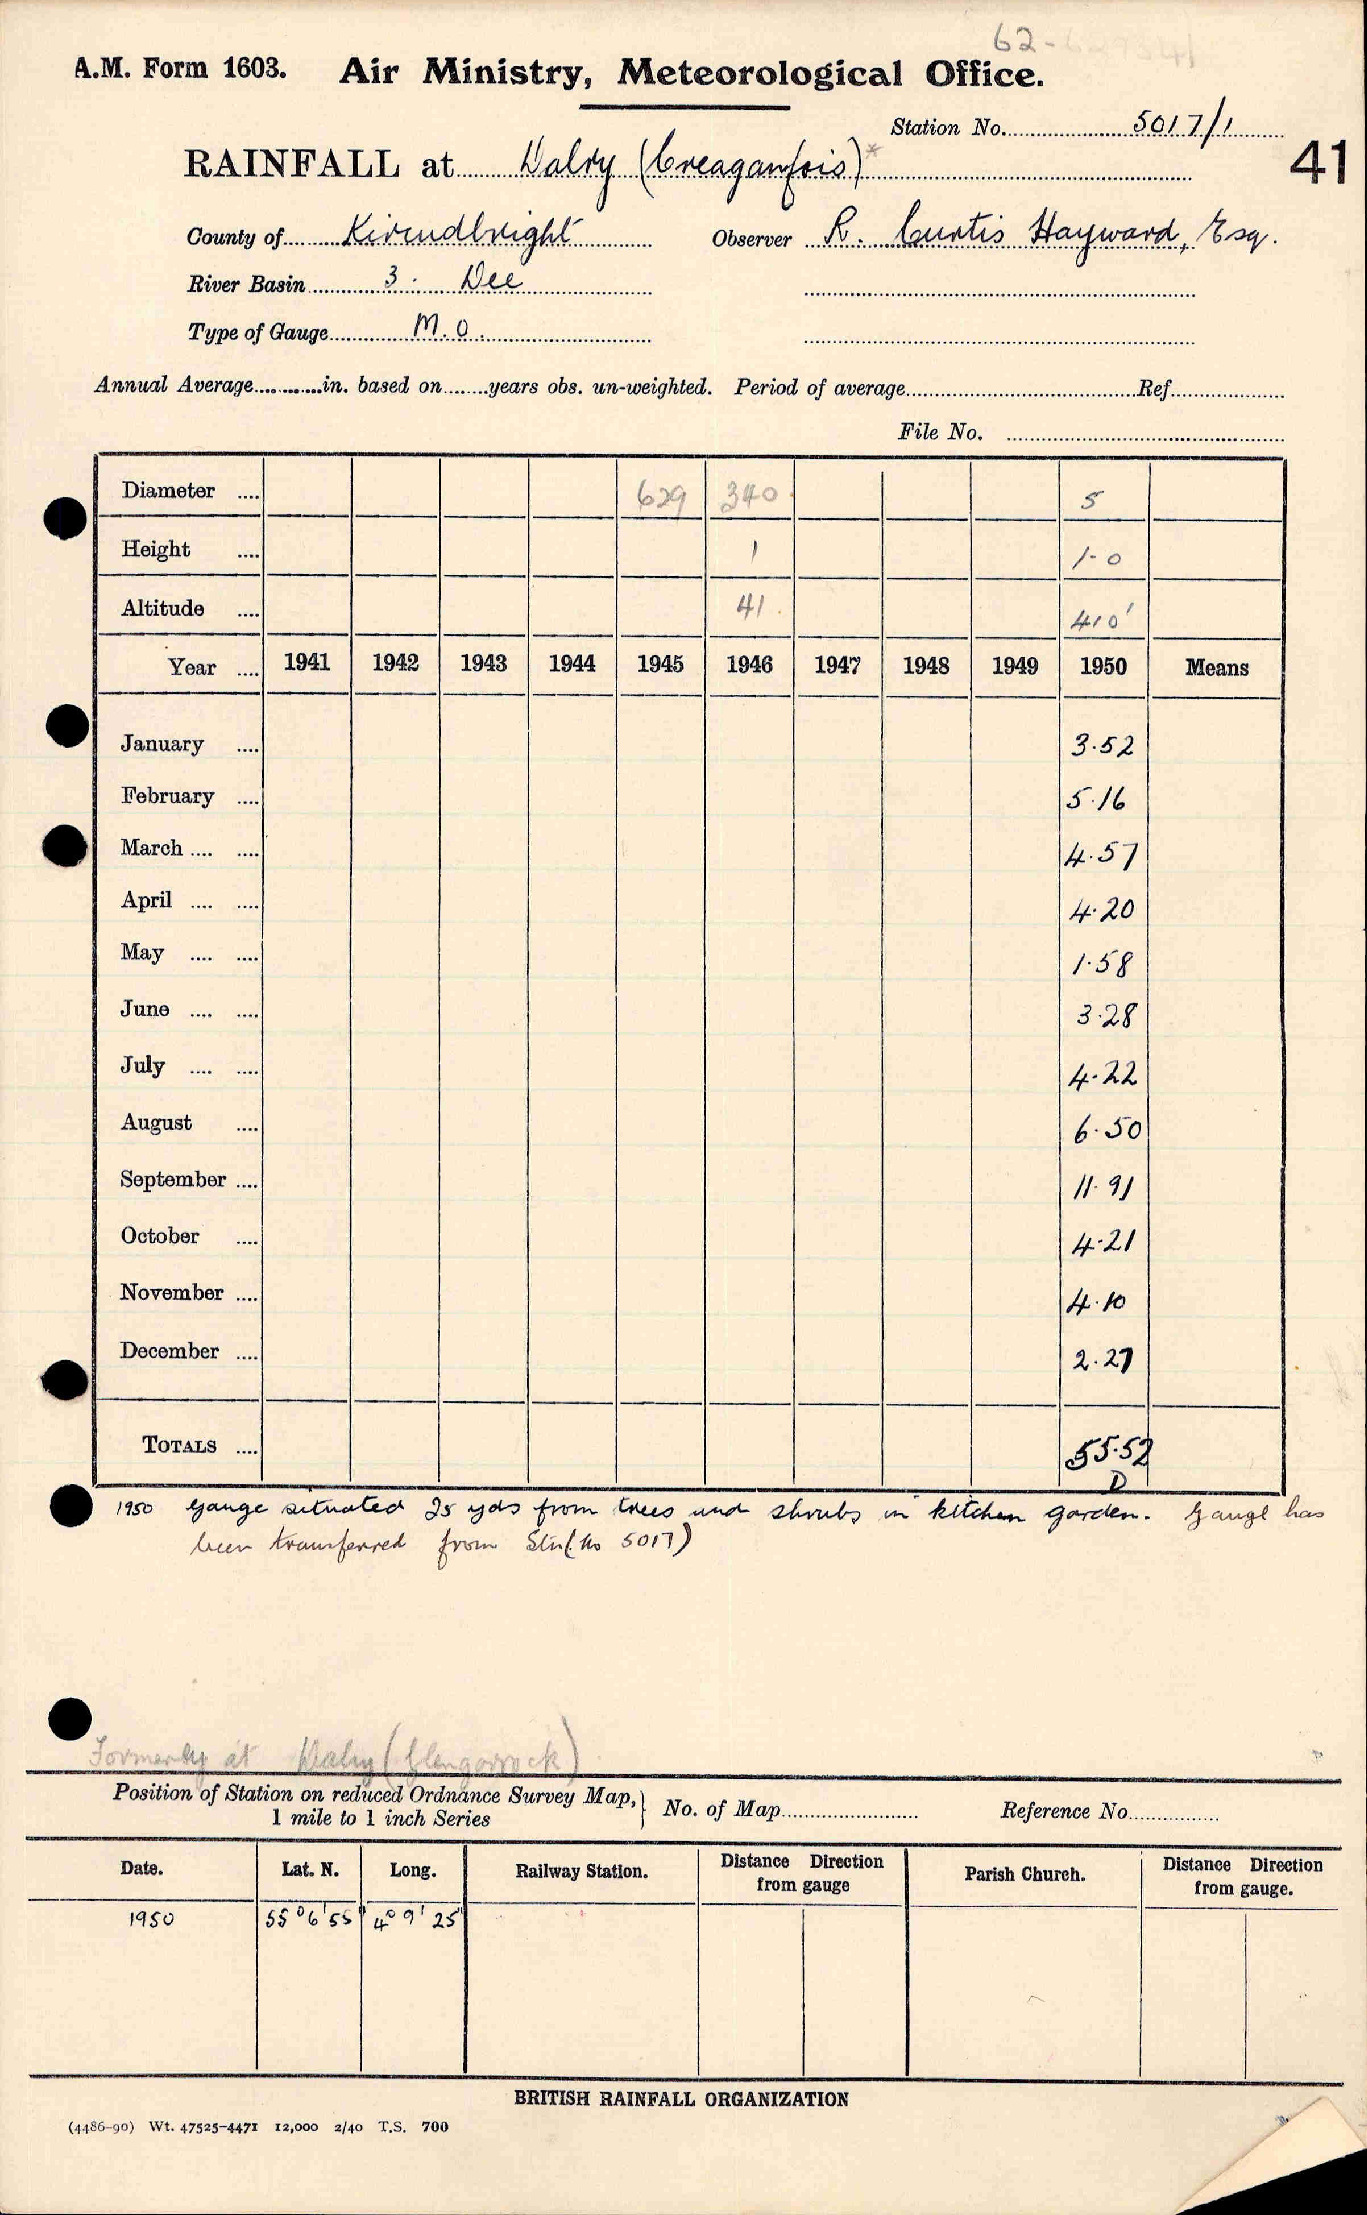 62-
A.M. Form 1603. Air Ministry, Meteorological Office.
Station No. 5017/1
41
RAINFALL at Dalry (Creaganfois)*
County of Kircudbright Observer R. Curtis Hayward, Esq.
River Basin 3. Dee
Type of Gauge M.O.
Annual Average............in. based on........years obs. un-weighted. Period of average........Ref........
File No.
Diameter .... 629 340 5
Height .... 1 1-0
Altitude .... 41. 410'
Year .... 1941 1942 1943 1944 1945 1946 1947 1948 1949 1950 Means
January .... 3.52
February .... 5.16
March .... .... 4.57
April .... .... 4.20
May .... .... 1.58
June .... .... 3.28
July .... .... 4.22
August .... 6.50
September .... 11.91
October .... 4.21
November .... 4.10
December .... 2.27
TOTALS .... 55.52
D
1950 Gauge situated 25 yds from trees and shrubs in kitchen garden. Gauge has
been transferred from Stn (No 5017)
Formerly at Dalry (Glengorrock)
Position of Station on reduced Ordnance Survey Map, 1 mile to 1 inch Series } No. of Map........ Reference No........
Date. Lat. N. Long. Railway Station. Distance Direction from gauge Parish Church. Distance Direction from gauge.
1950 55° 6' 55" 4° 9' 25"
BRITISH RAINFALL ORGANIZATION
(4486-90) Wt. 47525-4471 12,000 2/40 T.S. 700